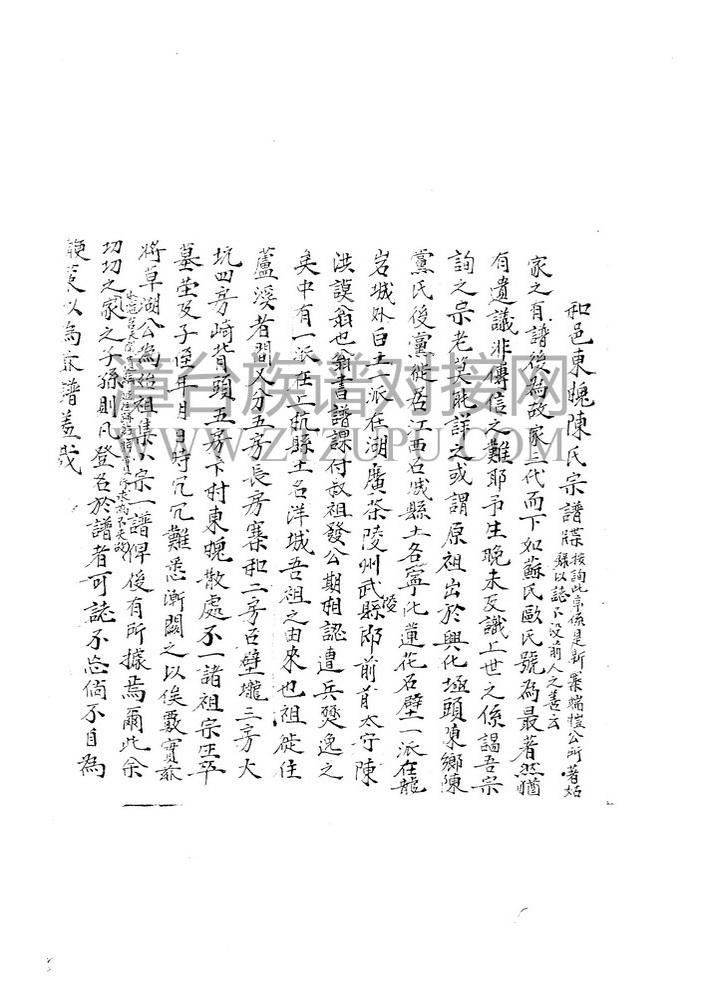 和邑東槐陳氏宗譜牒 按詢此亭係是新寨端愷公所著姑
錄以誌不沒前人之善云
家之有譜後為故家三代而下如蘇氏歐氏號為最著然猶
有遺議非傳信之難耶予生晚未及識上世之係謁吾宗
詢之宗老莫能詳之或謂原祖出於興化𡑞頭陳鄉陳
黨氏後黨徙吾江西石城縣土名寧化蓮花石壁一派在龍
岩城外白土一派在湖廣茶陵州武陵縣鄰前肯太守陳
洪謨翁也翁書譜諜付叔祖發公期相認遭兵燹逸之
矣中有一派在上杭縣土名洋城吾祖之由來也祖徙住
蘆溪者間又分五房長房寨和二房石壁壠三房大
坑四房崎背頭五房下村東槐散處不一諸祖宗生卒
墓塋及子侄年月日時冗冗難悉漸闕之以俟覈實茲
將草湖公為始祖集小宗一譜俾後有所據焉爾此余
切切之家之子孫則凡登名於譜者可誌不忘倘不自為
以為茲譜羞哉
漳台族谱对接网
WWW.ZTZUPU.COM